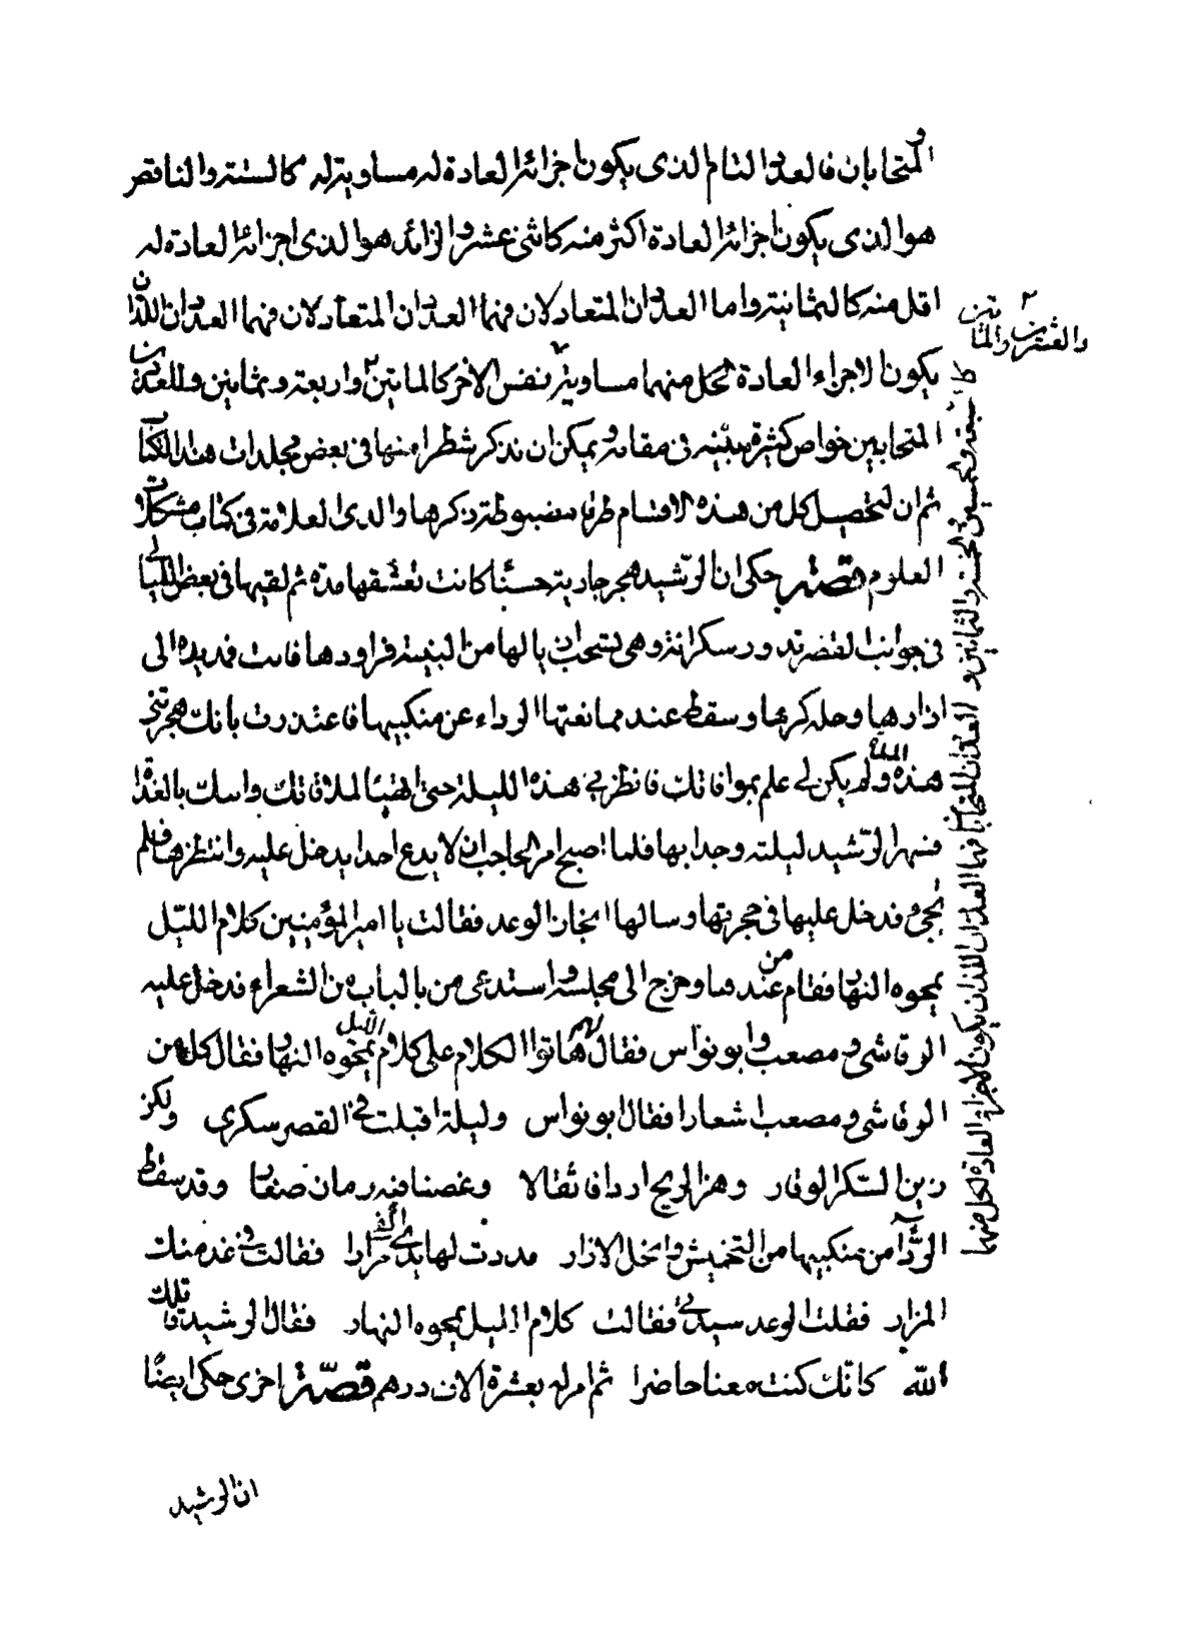 المتحابان فالعدد التام الذى يكون اجزائه العادة له مساوية له كالستة والناقص
هو الذى يكون اجزائه العادة اكثر منه كاثنى عشر والزائد هو الذى اجزائه العادة له
اقل منه كالثمانية واما العددان المتعادلان فهما العددان المتعادلان فهما العددان اللذان
يكون الاجزاء العادة لكل منهما مساوية نفس الاخر كالمايتين واربعة وثمانين وللعددين
المتحابين خواص كثيرة مبيّنه فى مقامه ويمكن ان نذكر شطرا منها فى بعض مجلدات هذا الكتاب
ثم ان لتحصيل كل من هذه الاقسام طرقا مضبوطة ذكرها والدى العلامة فى كتاب مشكلات
العلوم قصة حكى ان الرّشيد هجر جارية حسنًا كانت تعشقها مدة ثم لقيها فى بعض الليالى
فى جوانب القصر تدور سكرانة وهى تسحب اذيالها من التيه فراودها فابت فمد يده الى
ازارها وحله كرها وسقط عند ممانعتها الرداء عن منكبيها فاعتذرت بانك هجرتنى
هذه المدة ولم يكن لى علم بموافاتك فانظرنى هذه الليلة حتى اتهيّا لملاقاتك واتيك بالغداة
فسهر الرّشيد ليلته وجدا بها فلما اصبح امر الحاجب ان لا يدع احدا يدخل عليه وانتظرها فلم
تجئ فدخل عليها فى حجرتها وسالها انجاز الوعد فقالت يا امير المؤمنين كلام الليل
يمحوه النهار فقام من عندها وخرج الى مجلسه واستدعى من بالباب من الشعراء فدخل عليه
الرقاشى ومصعب وابو نواس فقال لهم هاتوا الكلام على كلام الليل يمحوه النهار فقال كل من
الرقاشى ومصعب اشعارا فقال ابو نواس وليلة اقبلت فى القصر سكرى ولكن
زين السكر الوقار وهز الريح اردافا ثقالا وغصنا فيه رمان صغار وقد سقط
الردآ من منكبيها من التخميش وانحل الازار مددت لها يدى الفى مزارا فقالت فى غد منك
المزار فقلت الوعد سيدتى فقالت كلام الليل يمحوه النهار فقال الرشيد قاتلك
الله كانّك كنت معنا حاضرا ثم امر له بعشرة الاف درهم قصّة اخرى حكى ايضًا
ان الرشيد
والعشرين والمائتين
والعددان المتحابان فهما العددان اللذان يكون الاجزاء العادة لكل منهما